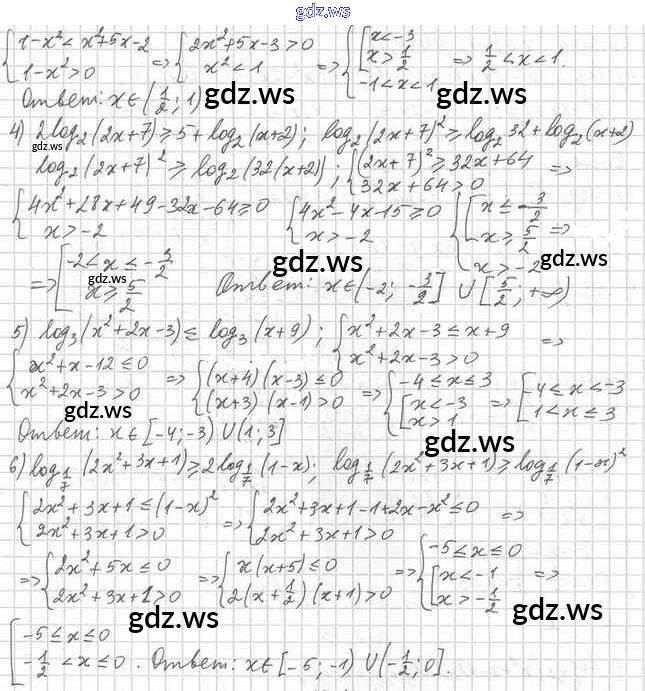 gdz.ws
{1-x²<x²+5x-2 {2x²+5x-3>0 {[x<-3
{1-x²>0 => {x²<1 => {[x>1/2 => 1/2<x<1.
{-1<x<1
Ответ: x∈(1/2; 1) gdz.ws gdz.ws
4) 2log₂(2x+7)≥5+log₂(x+2); log₂(2x+7)²≥log₂32+log₂(x+2)
gdz.ws
log₂(2x+7)²≥log₂(32(x+2)); {(2x+7)²≥32x+64
{32x+64>0 =>
{4x²+28x+49-32x-64≥0 {4x²-4x-15≥0 {[x≤-3/2
{x>-2 {x>-2 {[x≥5/2 =>
{x>-2
gdz.ws gdz.ws
=> [-2<x≤-3/2
[x≥5/2 Ответ: x∈(-2; -3/2] ∪ [5/2; +∞)
gdz.ws
5) log₃(x²+2x-3)≤log₃(x+9); {x²+2x-3≤x+9
{x²+2x-3>0 =>
{x²+x-12≤0 => {(x+4)(x-3)≤0 => {-4≤x≤3 => [-4≤x<-3
{x²+2x-3>0 {(x+3)(x-1)>0 {[x<-3 [1<x≤3
{[x>1
gdz.ws
Ответ: x∈[-4;-3) ∪ (1; 3] gdz.ws
6) log₁/₇(2x²+3x+1)≥2log₁/₇(1-x); log₁/₇(2x²+3x+1)≥log₁/₇(1-x)²
{2x²+3x+1≤(1-x)² => {2x²+3x+1-1+2x-x²≤0 =>
{2x²+3x+1>0 {2x²+3x+1>0
=> {2x²+5x≤0 => {x(x+5)≤0 => {-5≤x≤0
{2x²+3x+1>0 {2(x+1/2)(x+1)>0 {[x<-1 =>
{[x>-1/2
gdz.ws gdz.ws
[-5≤x≤0
[-1/2<x≤0. Ответ: x∈[-5; -1) ∪ (-1/2; 0].